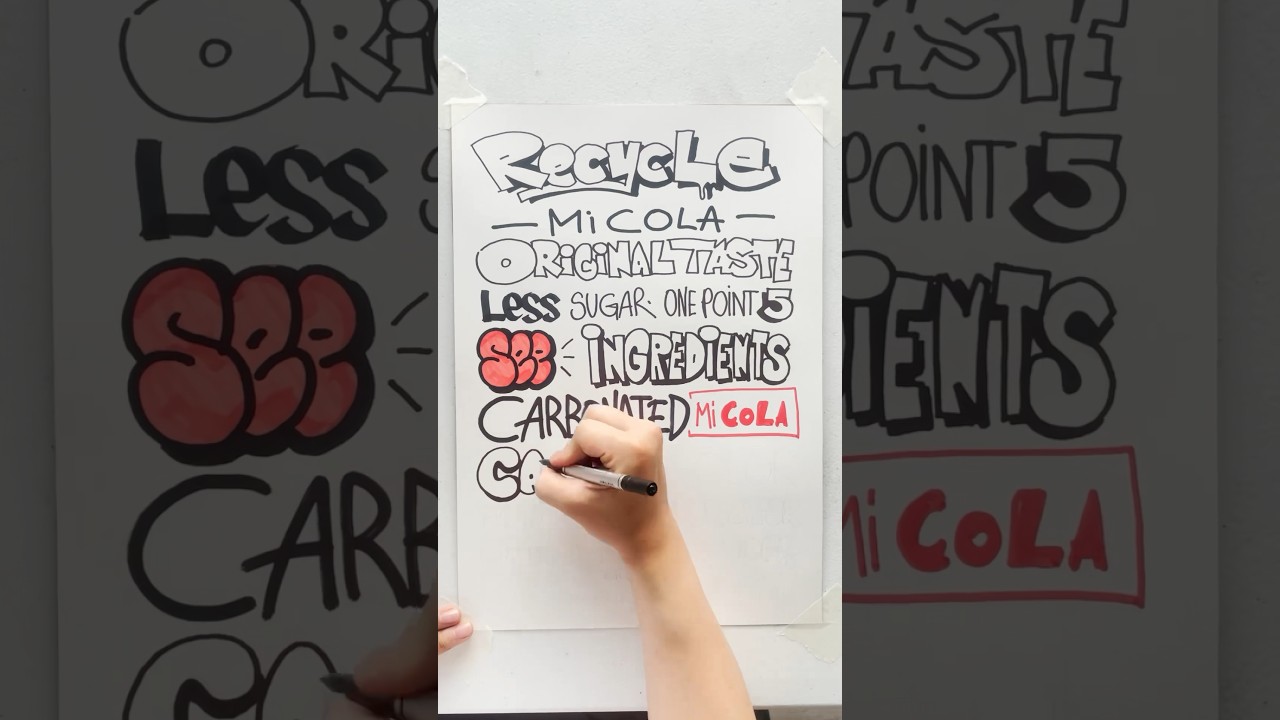 RECYCLE
— Mi COLA —
ORiGiNAL TASTE
LESS SUGAR· ONE POiNT 5
See iNGREDiENTS
CARBONATED Mi COLA
CA